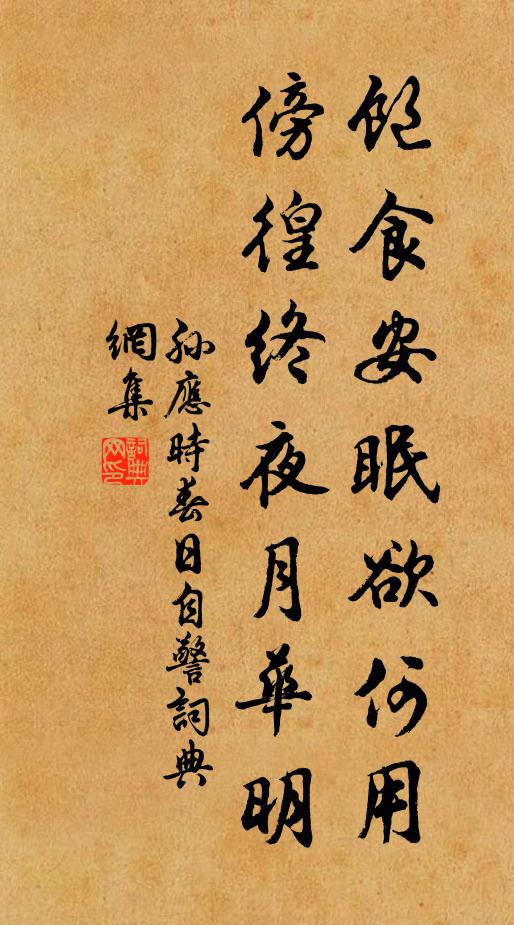 飽食安眠欲何用
傍徨終夜月華明
孫應時春日自警詞典
網集
詞典網印